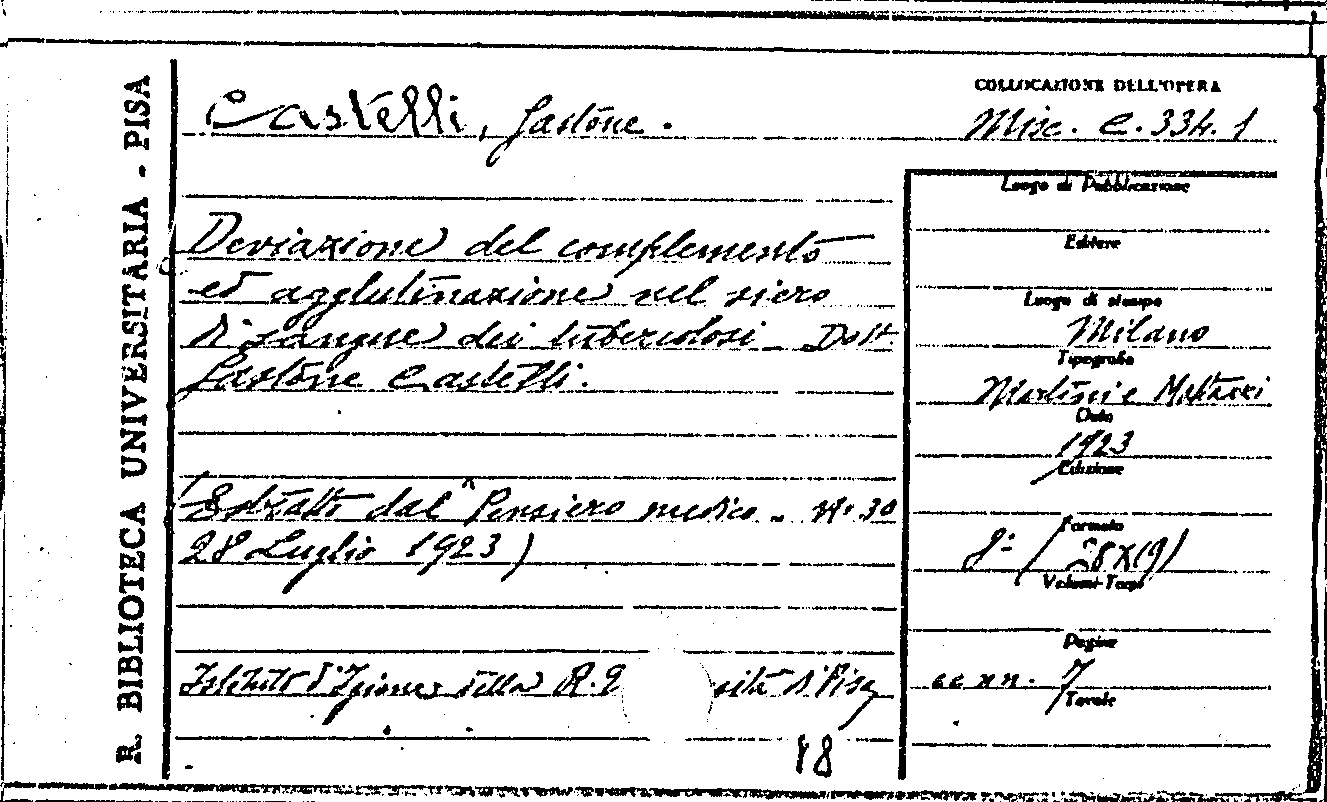 R. BIBLIOTECA UNIVERSITARIA - PISA
Castelli, Gastone.
COLLOCAZIONE DELL'OPERA
Misc. C. 334. 1
Deviazione del complemento
ed agglutinazione nel siero
di sangue dei tubercolosi - Dott.
Gastone Castelli.
(Estratto dal "Pensiero medico - N. 30
28 Luglio 1923)
Istituto d'Igiene della R. sità di Pisa
18
Luogo di Pubblicazione
Editore
Luogo di stampa
Milano
Tipografia
Martini e
Data
1923
Edizione
Formato
8° (28x19)
Volumi-Tomi
Pagine
cc nn. 7
Tavole